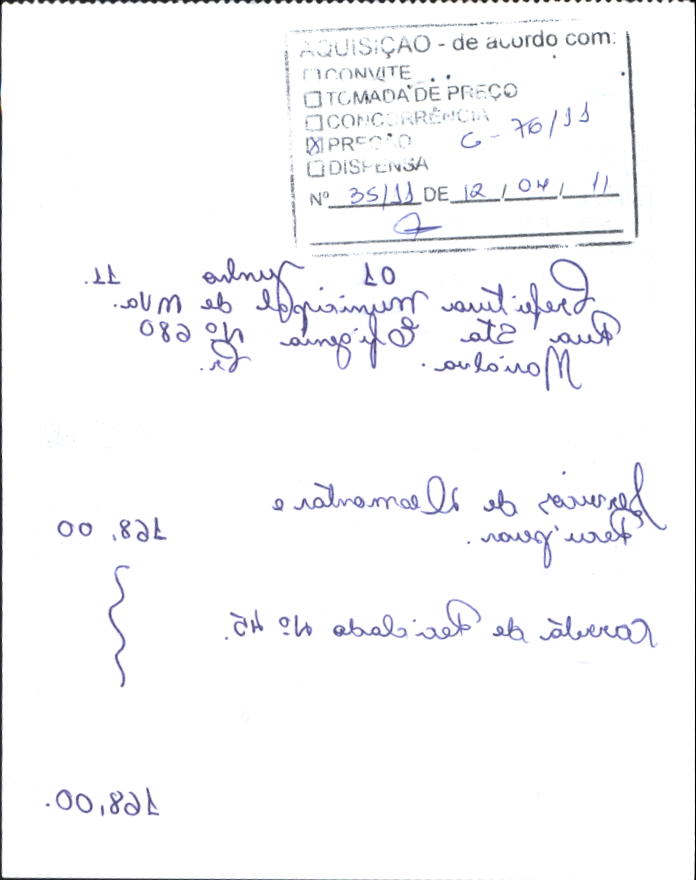 AQUISIÇAO - de acordo com:
☐ CONVITE
☐ TOMADA DE PREÇO
☐ CONCORRÊNCIA
☒ PREGÃO G - 76/11
☐ DISPENSA
Nº 35/11 DE 12 / 04 / 11
01 Junho 11.
Prefeitura Municipal de Mva.
Rua Sta Efigenia Nº 680
Marialva. Pr.
Serviços de Desmontar e
168,00
Carreta de Reciclado Nº 45.
168,00.